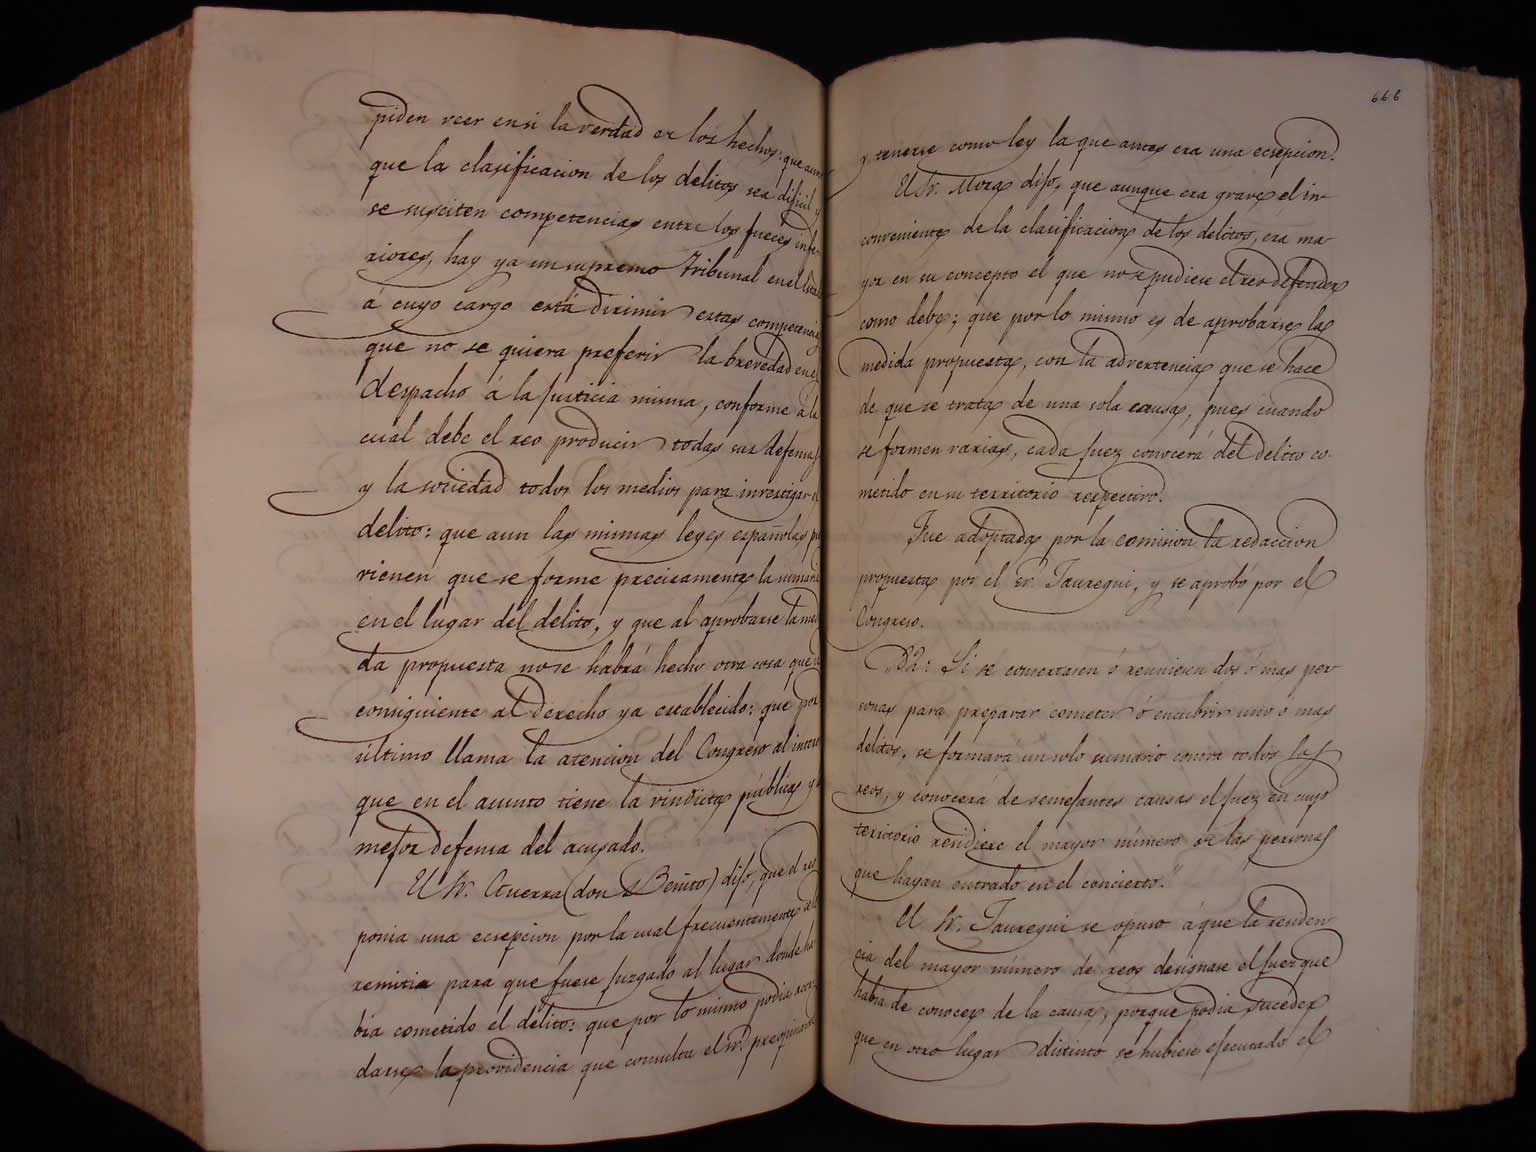 piden veer en si la verdad de los hechos: que aun
que la clasificacion de los delitos sea dificil y
se susciten competencias entre los jueces infe-
riores, hay ya un supremo tribunal en el
á cuyo cargo está dirimir estas competencias
que no se quiera preferir la brevedad en el
despacho á la justicia misma, conforme á la
cual debe el reo producir todas sus defensas
y la sociedad todos los medios para investigar el
delito: que aun las mismas leyes españolas pre
vienen que se forme precisamente la sumaria
en el lugar del delito, y que al aprobarse la medi
da propuesta no se habrá hecho otra cosa que
consiguiente al derecho ya establecido: que por
último llama la atencion del Congreso al interes
que en el asunto tiene la vindicta pública y la
mejor defensa del acusado.
El Sr. Guerra (don Benito) dijo, que el reo
ponia una ecsepcion por la cual frecuentemente se le
remitia para que fuese juzgado al lugar donde ha
bia cometido el delito: que por lo mismo podia
darse la providencia que consulta el sr. preopinante
666
y tenerse como ley la que antes era una ecsepcion.
El Sr. Mora dijo, que aunque era grave el in-
conveniente de la clasificacion de los delitos, era ma-
yor en su concepto el que no se pudiese el reo defender
como debe; que por lo mismo es de aprobarse la
medida propuesta, con la advertencia que se hace
de que se trata de una sola causa, pues cuando
se formen varias, cada juez conocerá del delito co-
metido en su territorio respectivo.
Fue adoptada por la comision la redaccion
propuesta por el Sr. Jauregui, y se aprobó por el
Congreso.
32: Si se concertasen ó reuniesen dos ó mas per
sonas para preparar cometer ó encubrir uno ó mas
delitos, se formará un solo sumario contra todos los
reos, y conocerá de semejantes causas el juez en cuyo
territorio residiere el mayor número de las personas
que hayan entrado en el concierto."
El Sr. Jauregui se opuso á que la residen
cia del mayor número de reos designase el juez que
habia de conocer de la causa, porque podia suceder
que en otro lugar distinto se hubiese ejecutado el